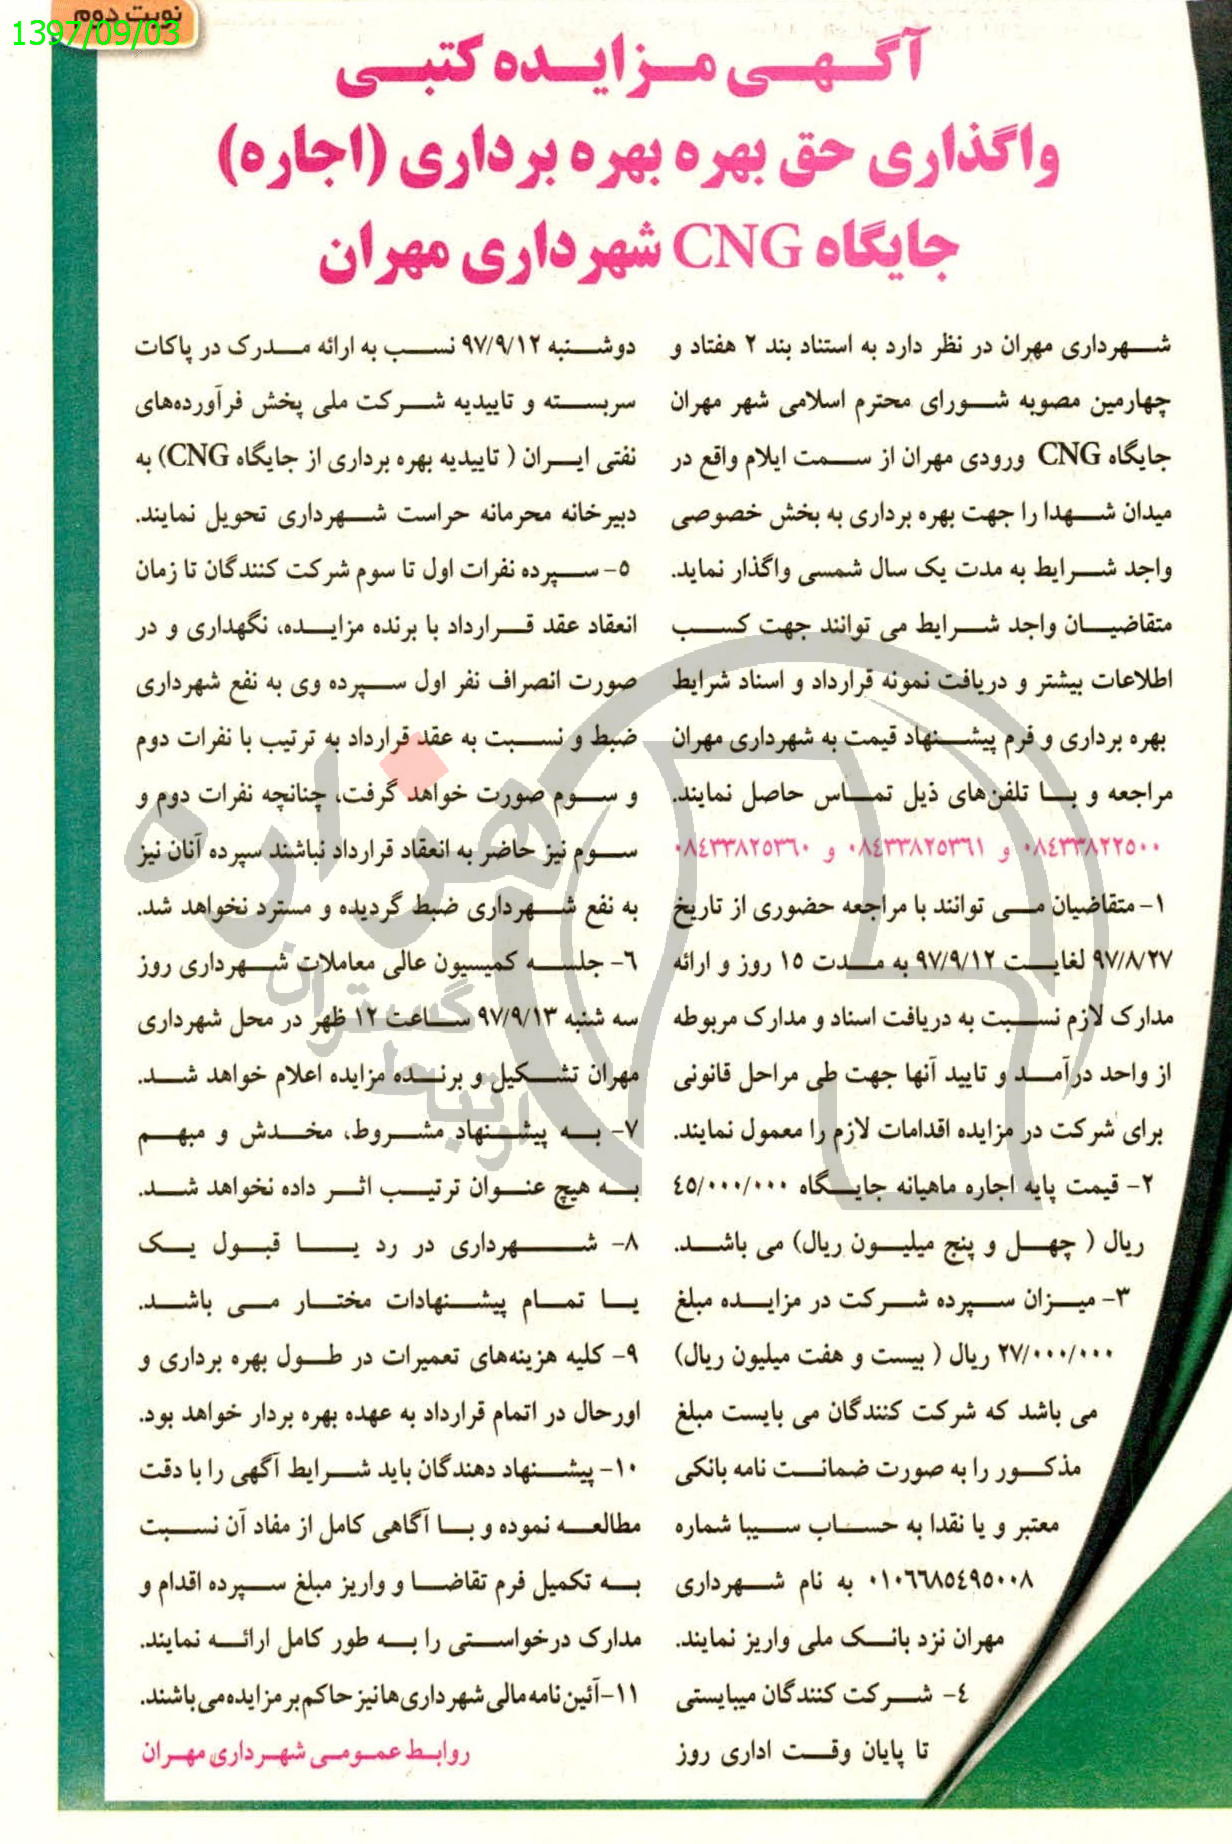 نوبت دوم
1397/09/03
آگهی مزایده کتبی
واگذاری حق بهره بهره برداری (اجاره)
جایگاه CNG شهرداری مهران
شهرداری مهران در نظر دارد به استناد بند ۲ هفتاد و
چهارمین مصوبه شورای محترم اسلامی شهر مهران
جایگاه CNG ورودی مهران از سمت ایلام واقع در
میدان شهدا را جهت بهره برداری به بخش خصوصی
واجد شرایط به مدت یک سال شمسی واگذار نماید.
متقاضیان واجد شرایط می توانند جهت کسب
اطلاعات بیشتر و دریافت نمونه قرارداد و اسناد شرایط
بهره برداری و فرم پیشنهاد قیمت به شهرداری مهران
مراجعه و با تلفن‌های ذیل تماس حاصل نمایند.
۰۸٤۳۳۸۲۲۵۰۰ و ۰۸٤۳۳۸۲۵۳٦۱ و ۰۸٤۳۳۸۲۵۳٦۰
۱- متقاضیان می توانند با مراجعه حضوری از تاریخ
۹۷/۸/۲۷ لغایت ۹۷/۹/۱۲ به مدت ۱۵ روز و ارائه
مدارک لازم نسبت به دریافت اسناد و مدارک مربوطه
از واحد درآمد و تایید آنها جهت طی مراحل قانونی
برای شرکت در مزایده اقدامات لازم را معمول نمایند.
۲- قیمت پایه اجاره ماهیانه جایگاه ٤۵/۰۰۰/۰۰۰
ریال ( چهل و پنج میلیون ریال) می باشد.
۳- میزان سپرده شرکت در مزایده مبلغ
۲۷/۰۰۰/۰۰۰ ریال ( بیست و هفت میلیون ریال)
می باشد که شرکت کنندگان می بایست مبلغ
مذکور را به صورت ضمانت نامه بانکی
معتبر و یا نقدا به حساب سیبا شماره
۰۱۰٦٦۸۵٤۹۵۰۰۸ به نام شهرداری
مهران نزد بانک ملی واریز نمایند.
٤- شرکت کنندگان میبایستی
تا پایان وقت اداری روز
دوشنبه ۹۷/۹/۱۲ نسب به ارائه مدرک در پاکات
سربسته و تاییدیه شرکت ملی پخش فرآورده‌های
نفتی ایران ( تاییدیه بهره برداری از جایگاه CNG) به
دبیرخانه محرمانه حراست شهرداری تحویل نمایند.
۵- سپرده نفرات اول تا سوم شرکت کنندگان تا زمان
انعقاد عقد قرارداد با برنده مزایده، نگهداری و در
صورت انصراف نفر اول سپرده وی به نفع شهرداری
ضبط و نسبت به عقد قرارداد به ترتیب با نفرات دوم
و سوم صورت خواهد گرفت، چنانچه نفرات دوم و
سوم نیز حاضر به انعقاد قرارداد نباشند سپرده آنان نیز
به نفع شهرداری ضبط گردیده و مسترد نخواهد شد.
٦- جلسه کمیسیون عالی معاملات شهرداری روز
سه شنبه ۹۷/۹/۱۳ ساعت ۱۲ ظهر در محل شهرداری
مهران تشکیل و برنده مزایده اعلام خواهد شد.
۷- به پیشنهاد مشروط، مخدش و مبهم
به هیچ عنوان ترتیب اثر داده نخواهد شد.
۸- شهرداری در رد یا قبول یک
یا تمام پیشنهادات مختار می باشد.
۹- کلیه هزینه‌های تعمیرات در طول بهره برداری و
اورحال در اتمام قرارداد به عهده بهره بردار خواهد بود.
۱۰- پیشنهاد دهندگان باید شرایط آگهی را با دقت
مطالعه نموده و با آگاهی کامل از مفاد آن نسبت
به تکمیل فرم تقاضا و واریز مبلغ سپرده اقدام و
مدارک درخواستی را به طور کامل ارائه نمایند.
۱۱- آئین نامه مالی شهرداری ها نیز حاکم بر مزایده می باشند.
روابط عمومی شهرداری مهران
هزاره
ارتباط گستران